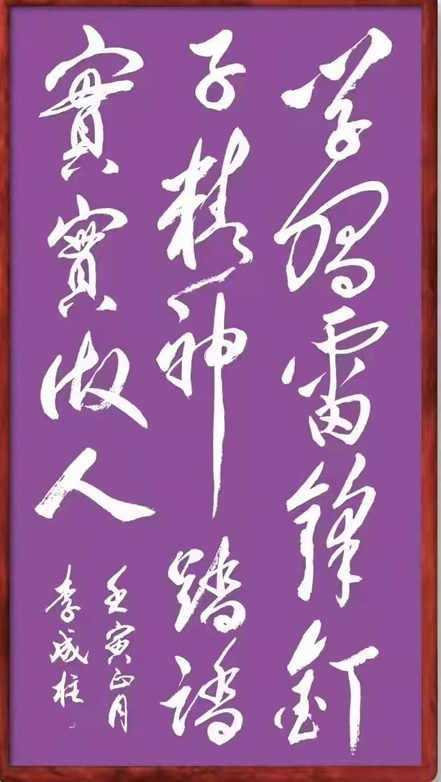 学習雷锋釘
子精神踏踏
實實做人
壬寅正月
李成柱